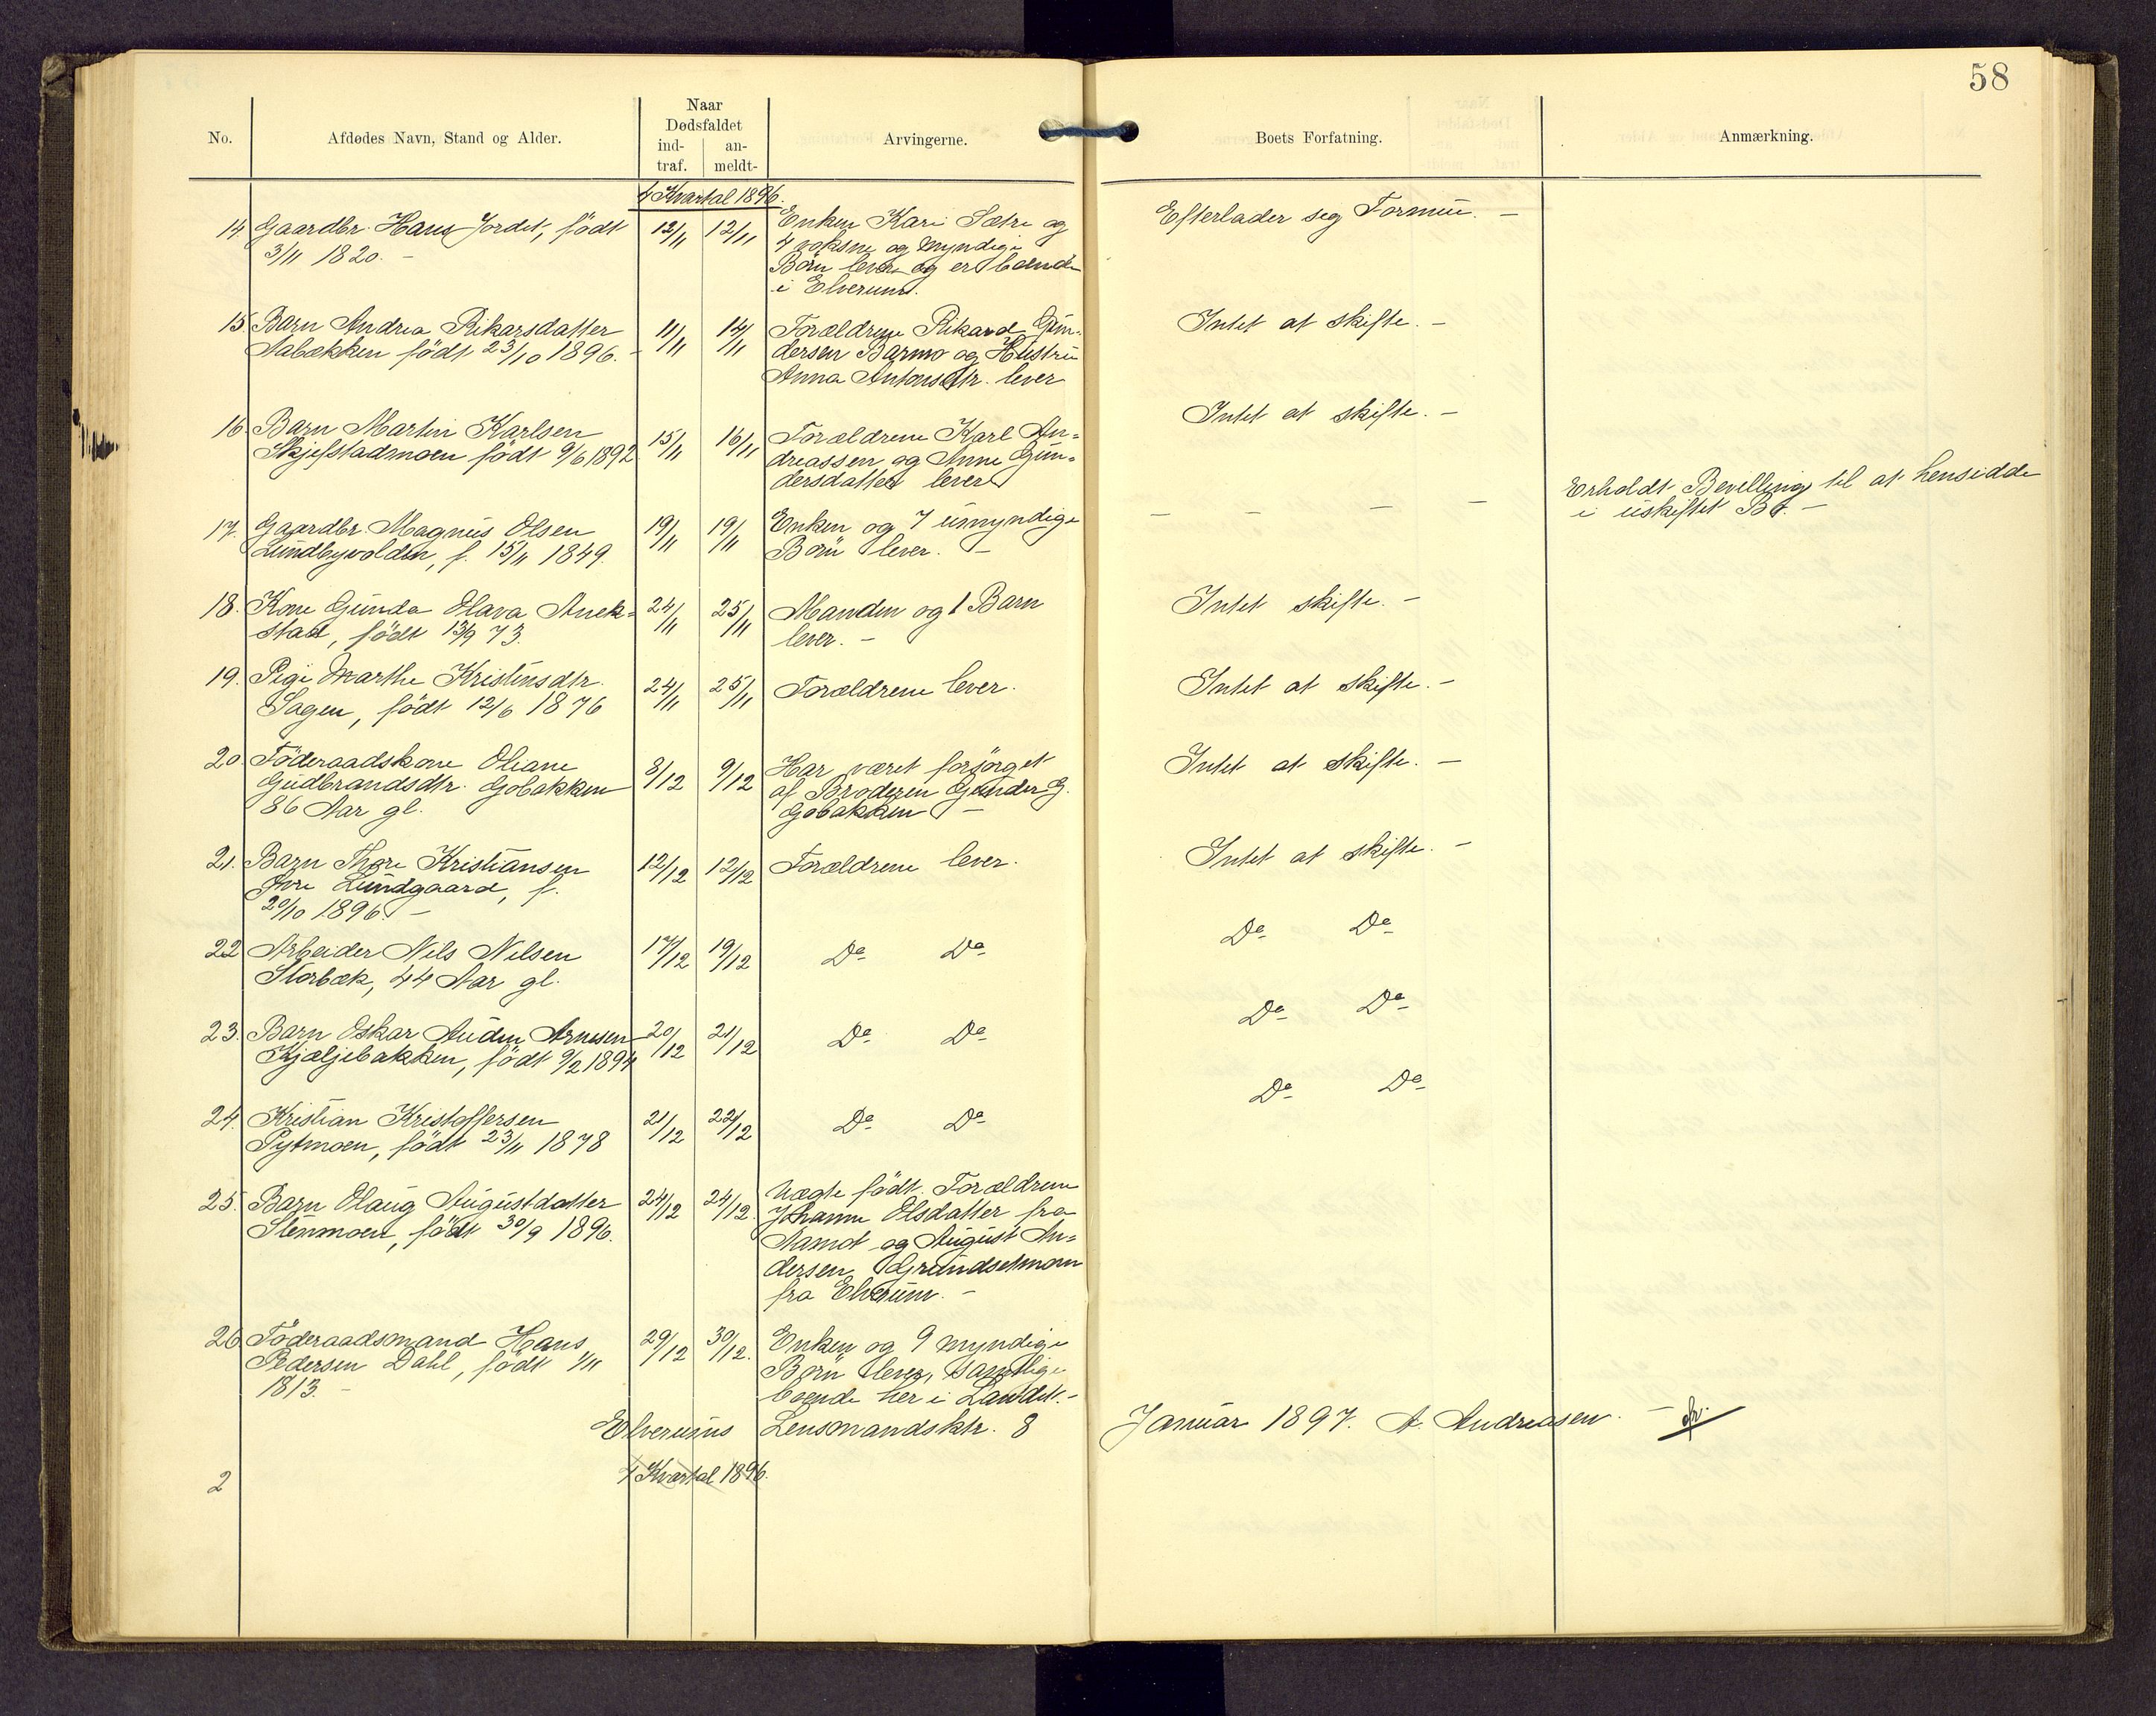 58
No.
Afdødes Navn, Stand og Alder.
Naar
Dødsfaldet
ind-
traf.
an-
meldt-
Arvingerne.
Boets Forfatning.
Anmærkning.
4 Kvartal 1896.
14 Gaardbr. Hans Jordet, födt 12/11 12/11 Enken Kari Sætre og Efterlader seg Formue. -
3/11 1820. - 4 voksne og myndige
Börn lever og er boende
i Elverum.
15. Barn Andrea Rikarsdatter 11/11 14/11 Forældrene Rikard Gun- Intet at skifte. -
Aabækken födt 23/10 1896. - dersen Barmo og Hustru
Anna Antonsdtr. lever
16. Barn Martin Karlsen 15/11 16/11 Forældrene Karl An- Intet at skifte. -
Skjefstadmoen födt 9/6 1892 dreassen og Anne Gun-
dersdatter lever
17. Gaardbr. Magnus Olsen 19/11 19/11 Enken og 7 umyndige - - - - Erholdt Bevilling til at hensidde
Lundbyvolden, f. 15/11 1849. Börn lever. - i uskiftet Bo. -
18. Kone Gunda Olava Anek- 24/11 25/11 Manden og 1 Barn Intet skifte. -
stad, födt 13/9 73. lever. -
19. Pige Marthe Kristinsdtr. 24/11 25/11 Forældrene lever. Intet at skifte. -
Sagen, födt 12/6 1876
20. Föderaadskone Oliane 8/12 9/12 Har været forsörget Intet at skifte. -
Gudbrandsdtr. Gobakken af Broderen Gunder G.
86 Aar gl. Gobakken -
21. Barn Thore Kristiansen 12/12 12/12 Forældrene lever. Intet at skifte. -
Lundgaard, f.
20/10 1896. -
22 Arbeider Nils Nilsen 17/12 19/12 Do Do Do Do
Storbæk, 44 Aar gl.
23. Barn Oskar Auden Arnesen 20/12 21/12 Do Do Do Do
Kjæljebakken, födt 9/2 1894
24. Kristian Kristoffersen 21/12 22/12 Do Do Do Do
Pytmoen, födt 23/11 1878
25. Barn Olaug Augustdatter 24/12 24/12. Uægte födt. Forældrene
Stenmoen, födt 30/9 1896. Johanne Olsdatter fra
Aamot og August An-
dersen Grundsetmoen
fra Elverum. -
26. Föderaadsmand Hans 29/12 30/12. Enken og 9 myndige
Pedersen Dahl, födt 1/11 Börn lever, samtlige
1813. - boende her i Landet. -
Elverums Lensmandsktr. 8 Januar 1897. A. Andreasen. -
4 Kvartal 1896.
2